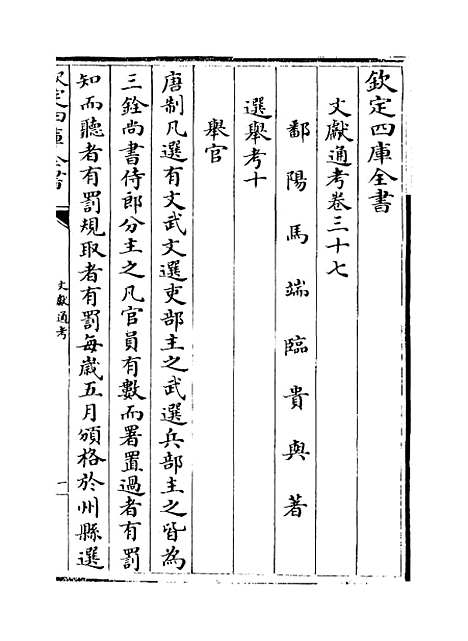 欽定四庫全書
文獻通考卷三十七
鄱陽馬端臨貴與著
選舉考十
舉官
唐制凡選有文武文選吏部主之武選兵部主之皆為
三銓尚書侍郎分主之凡官員有數而署置過者有罰
知而聽者有罰規取者有罰每歲五月頒格於州縣選
欽定四庫全書
文獻通考
一